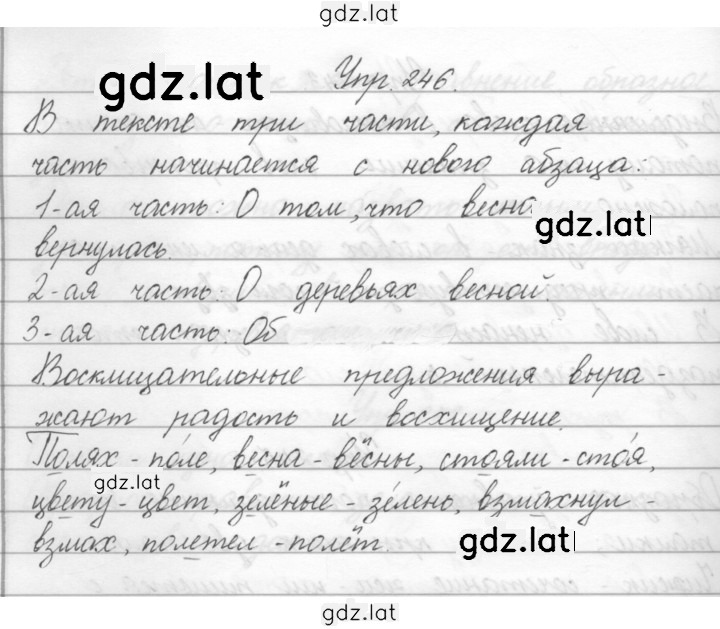 gdz.lat
gdz.lat Упр. 246.
В тексте три части, каждая
часть начинается с нового абзаца:
1-ая часть: О том, что весна gdz.lat
вернулась.
2-ая часть: О деревьях весной.
3-ая часть: Об
Восклицательные предложения выра-
жают радость и восхищение.
Полях - поле, весна - вёсны, стояли - стоя,
gdz.lat
цвету - цвет, зелёные - зелень, взмахнул -
взмах, полетел - полёт. gdz.lat
gdz.lat